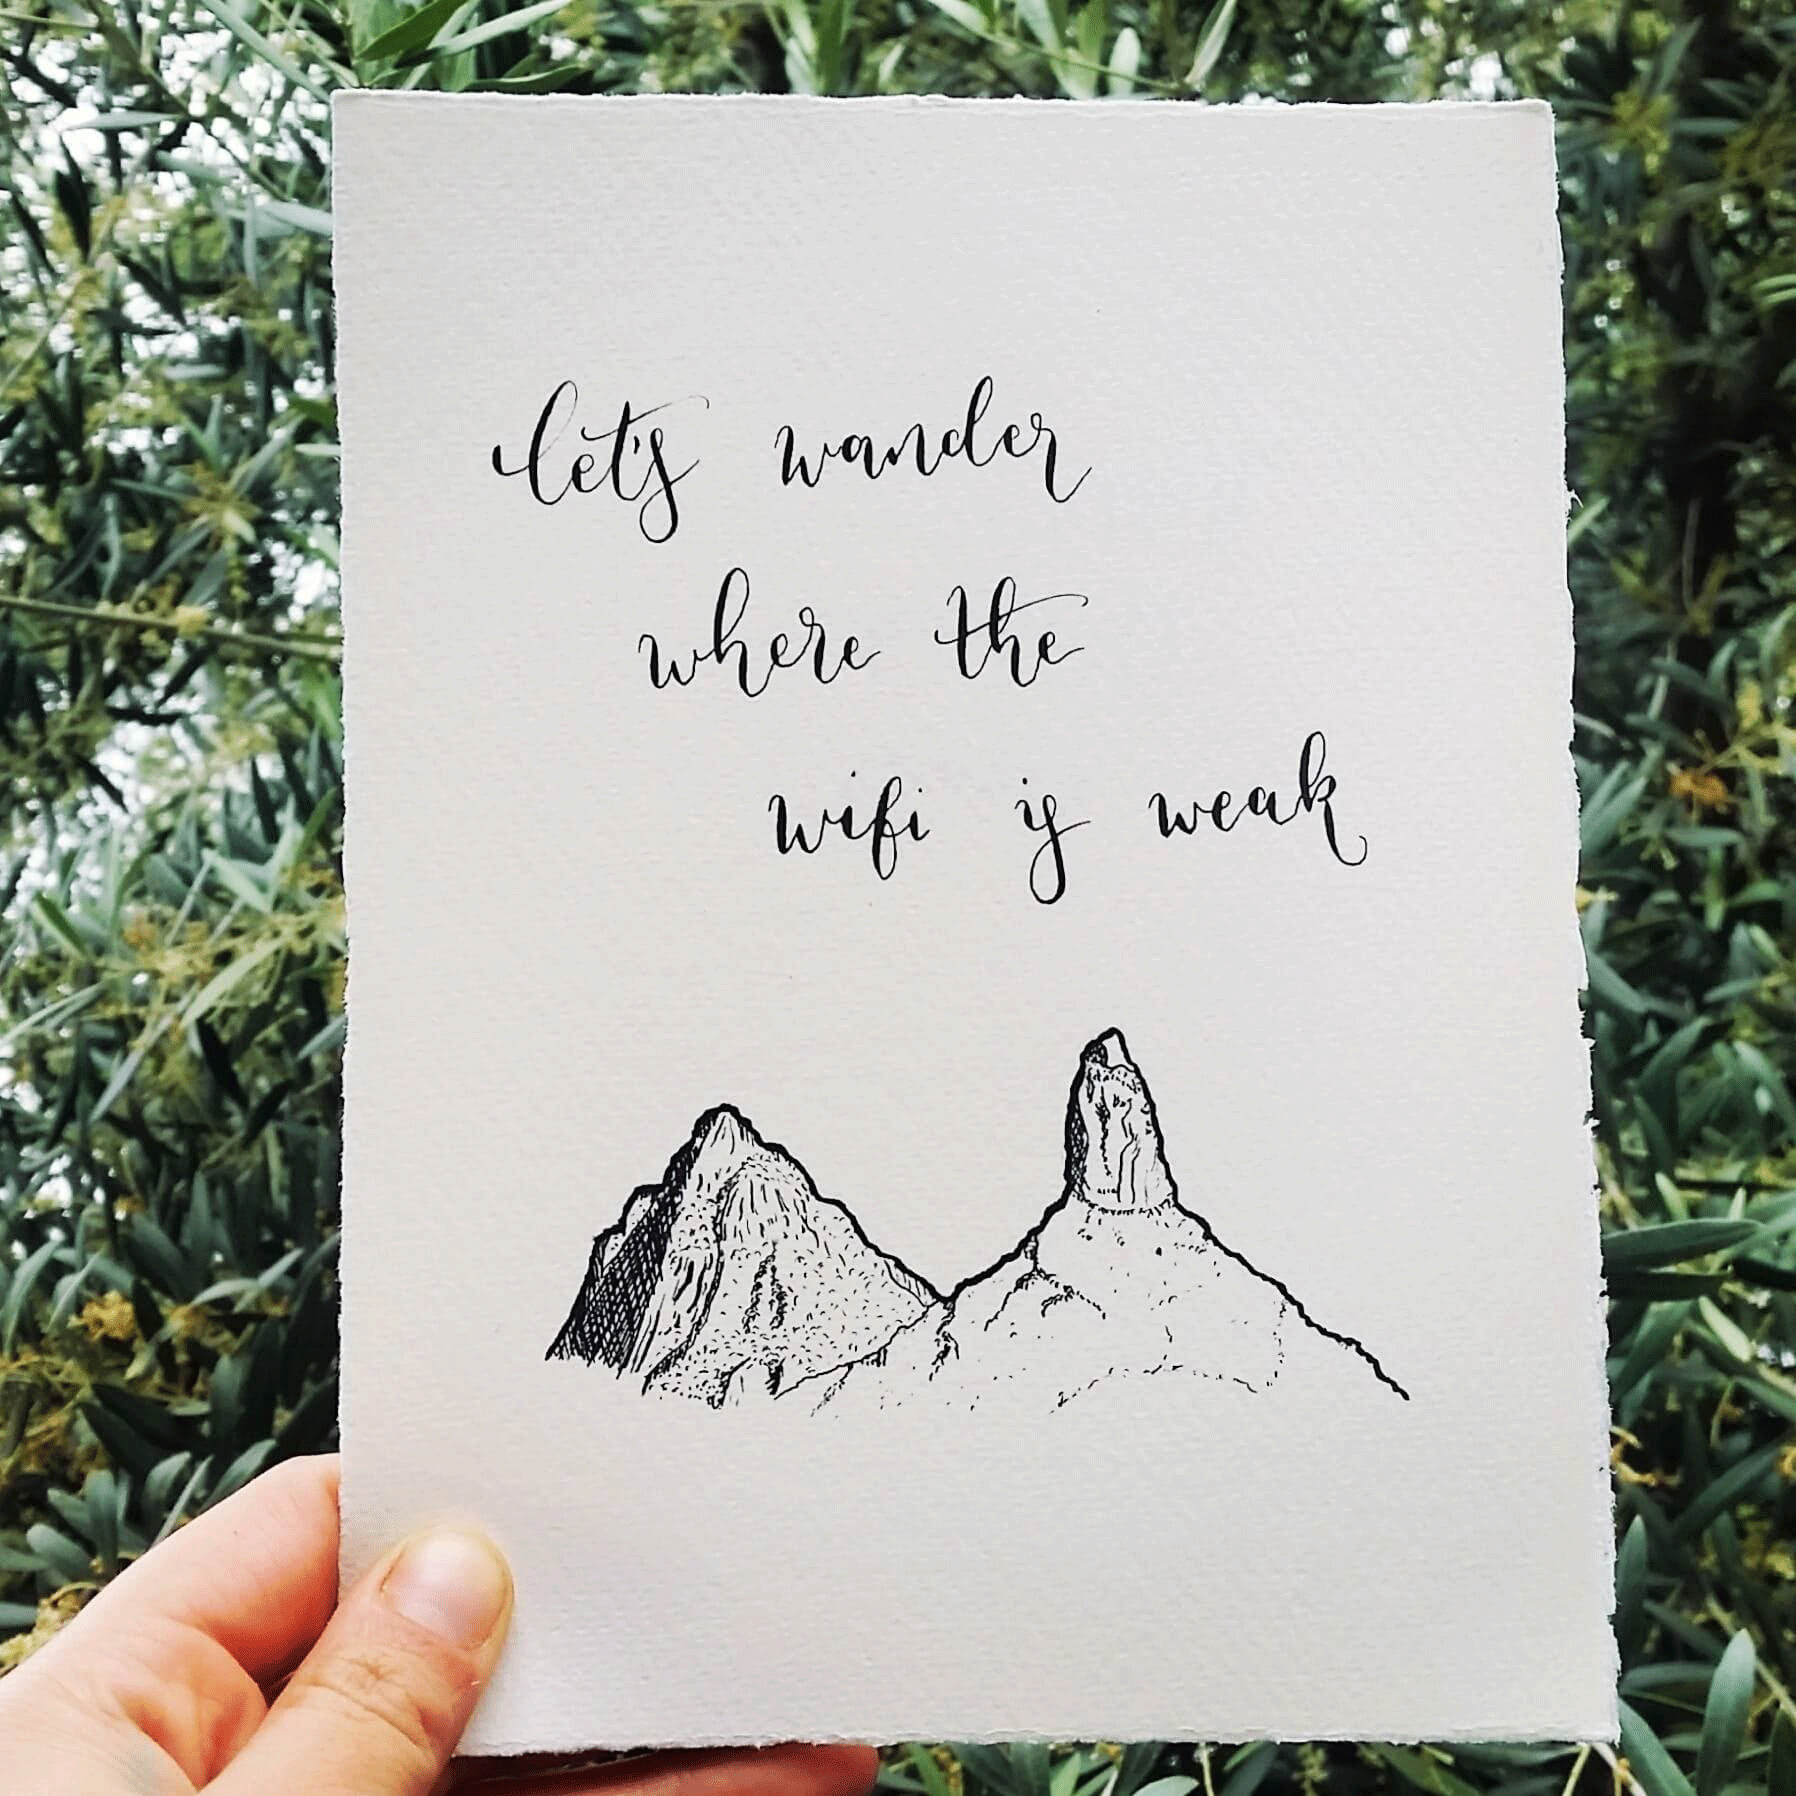 let's wander
where the
wifi is weak